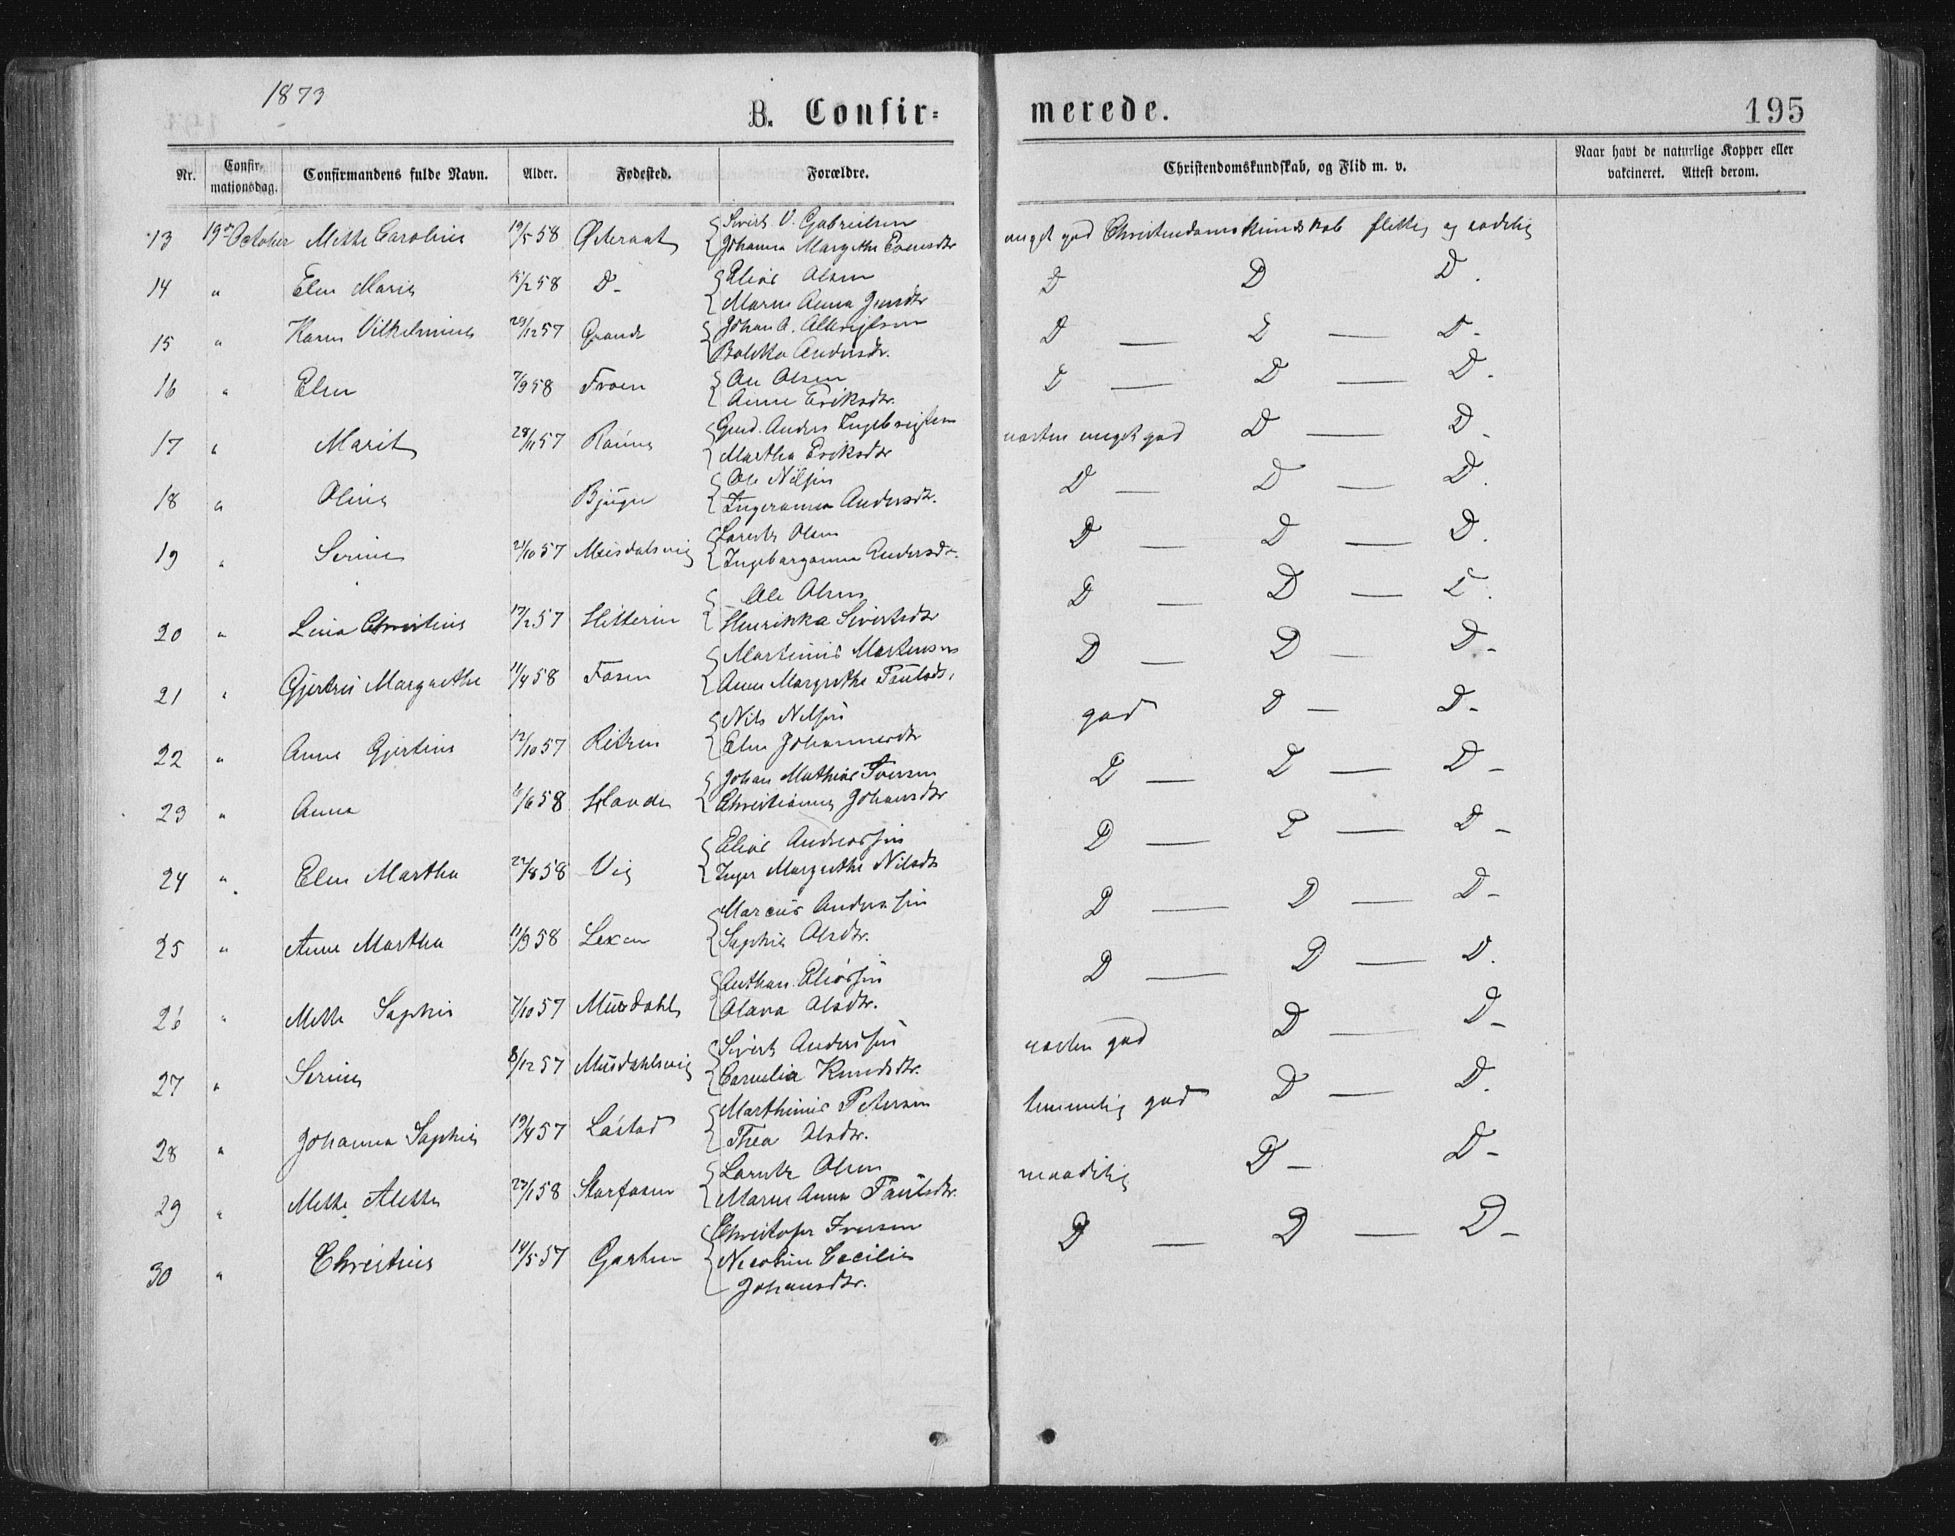 1873
B. Confirmerede.
195
Nr. Confirmationsdag. Confirmandens fulde Navn. Alder. Fødested. Forældre. Christendomskundskab, og Flid m. v. Naar havt de naturlige Kopper eller vakcineret. Attest derom.
13 19de October Mette Caroline 19/5 58 Østeraat Sivert V. Gabrielsen
Johanna Margrethe meget god Christendomskundskab flittig og sædelig
14 " Elen Marie 15/2 58 D- Elias Olsen
Maren Anna Jensdtr D D D.
15 " Karen Vilhelmine 29/12 57 Grande Johan A. Albrigtsen
Boletta Andersdr. D — D — D-
16 " Elen 7/9 58 Froen Ole Olsen
Anne Eriksdtr. D — D — D.
17 " Marit 28/11 57 Gmd. Anders Ingebrigtsen
Martha Eriksdtr næsten meget god D — D-
18 " Oline Bjugn Ole Nilsen
Ingeranna Andersdtr. D — D — D.
19 " Serine 21/10 57 Musdalsvig Lorents Olsen
Ingeborganna Andersdr. D — D — D.
20 " Lina Christine 17/2 57 Hitteren Ole Olsen
Henrikka Sivertsdtr D — D — D.
21 " Gjertru Margrethe 11/4 58 Fosen Martinus Martensen
Anne Margrethe Paulsdt. D — D — D-
22 " Anne Gjertine 12/10 57 Nils Nilsen
Elen Johannesdtr god D — D-
23 " Anna 6/6 58 Hovde Johan Mathias Iversen
Christianna Johansdtr D — D — D-
24 " Elen Martha 22/8 58 Vig Elias Andreassen
Inger Margrethe Nilsdtr D — D — D-
25 " Anne Martha 11/9 58 Lexen Marcus Anderssen
Sophie Olsdtr. D — D — D-
26 " Mette Sophie 7/10 57 Musdahl Anthon Eliassen
Olava Olsdtr. D — D — D.
27 " Serine 8/12 57 Musdahlsvig Sivert Anderssen
Cornelia Knudsdtr. næsten god D — D-
28 " Johanna Sophie 19/4 57 Marthinus Petersen
Thea Olsdtr. temmelig god D — D.
29 " Mette Alette 27/1 58 Storfosen Lorents Olsen
Maren Anna Paulsdtr. maadelig D- D-
30 " Christine 14/5 57 Garten Christofer Iversen
Nicoline Cecilie
Johansdtr. D — D — D-